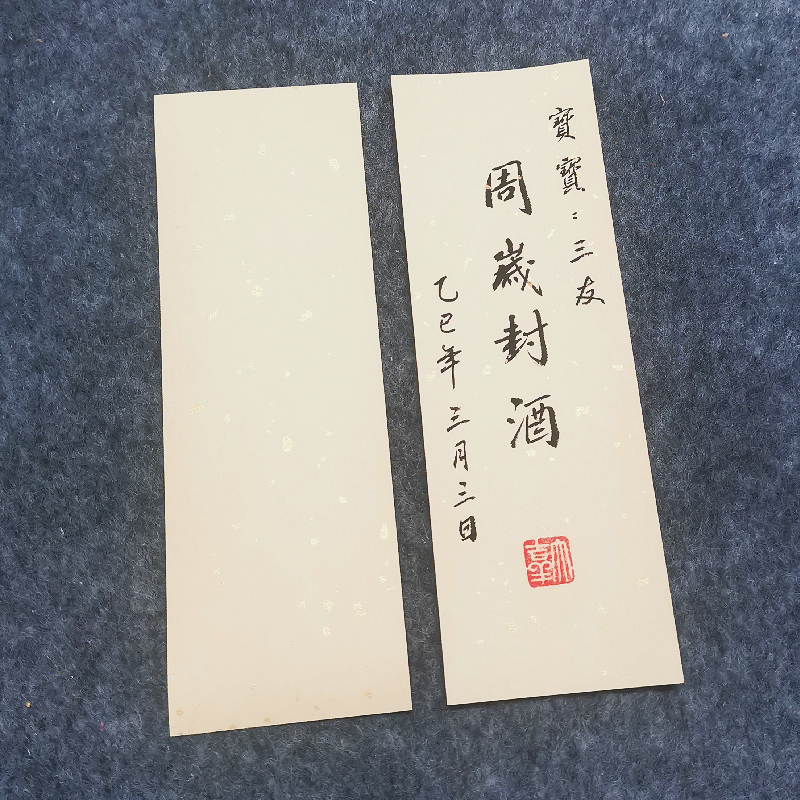 寶寶：三友
周歲封酒
乙巳年三月三日